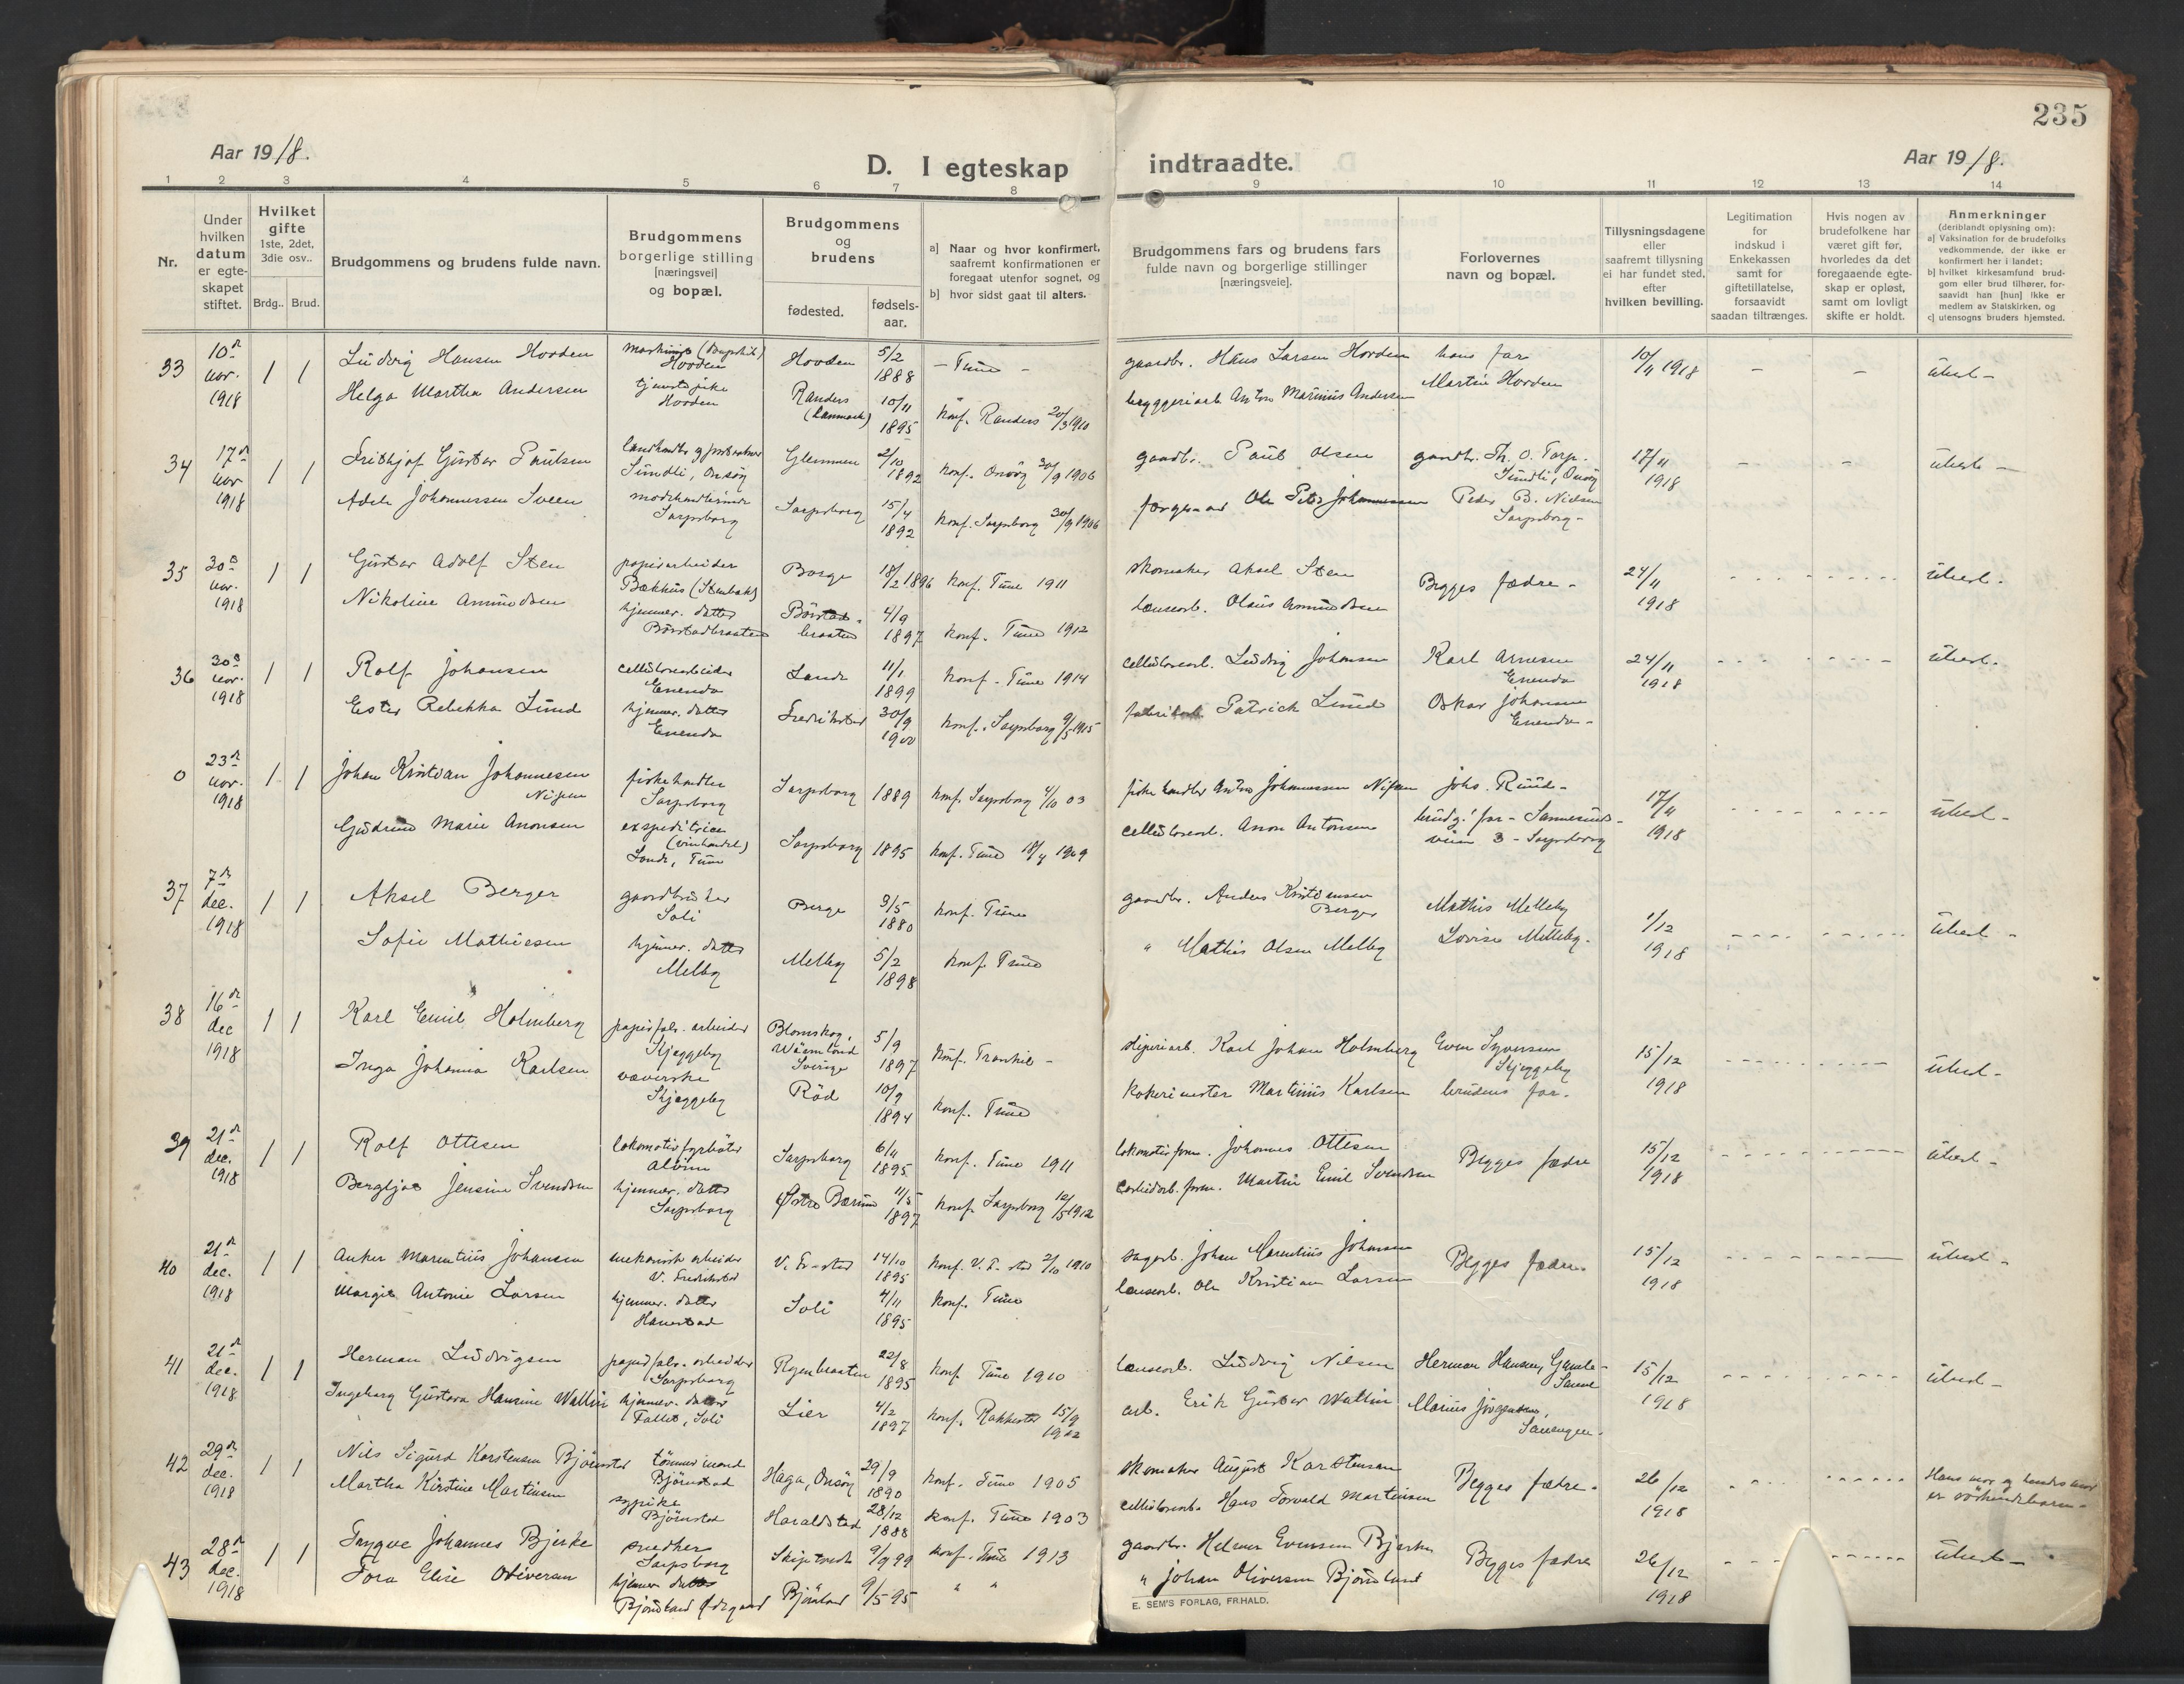 235
Aar 1918.
D. I egteskap indtraadte.
Aar 1918.
1 2 3 4 5 6 7 8 9 10 11 12 13 14
Nr.
Under hvilken datum er egte-skapet stiftet.
Hvilket gifte 1ste, 2det, 3die osv..
Brdg.. Brud.
Brudgommens og brudens fulde navn.
Brudgommens borgerlige stilling [næringsvei] og bopæl.
Brudgommens og brudens
fødested.
fødsels-aar.
a] Naar og hvor konfirmert, saafremt konfirmationen er foregaat utenfor sognet, og
b] hvor sidst gaat til alters.
Brudgommens fars og brudens fars fulde navn og borgerlige stillinger [næringsveie].
Forlovernes navn og bopæl.
Tillysningsdagene eller saafremt tillysning ei har fundet sted, efter hvilken bevilling.
Legitimation for indskud i Enkekassen samt for giftetillatelse, forsaavidt saadan tiltrænges.
Hvis nogen av brudefolkene har været gift før, hvorledes da det foregaaende egte-skap er opløst, samt om lovligt skifte er holdt.
Anmerkninger (deriblandt oplysning om):
a] Vaksination for de brudefolks vedkommende, der ikke er konfirmert her i landet;
b] hvilket kirkesamfund brud-gom eller brud tilhører, for-saavidt han [hun] ikke er medlem av Statskirken, og
c] utensogns bruders hjemsted.
33 10de nov. 1918 1 1
Ludvig Hansen Hovden Hovden Hovden 5/2 1888 - Tune - gaardbr. Hans Larsen Hovden hans far 10/11 1918 - - ubesl -
Helga Martha Andersen tjenestepike Hovden Randers (Danmark) 10/11 1895 konf. Randers 20/3 1910 bryggeriarb. Anton Marinius Andersen Martin Hovden
34 17de nov 1918 1 1
Frithjof Gustav Paulsen Sundli, Onsøy Glemmen 2/10 1892 konf. Onsøy 30/9 1906 gaardbr. Paul Olsen gaardbr. Th. O. Torp. Sundli, Onsøy 17/11 1918 - - ubesl -
Adele Johannessen Sveen modehandlerinde Sarpsborg Sarpsborg 15/4 1892 konf. Sarpsborg 30/9 1906 Ole Peter Johannessen Peder B. Nielsen Sarpsborg -
35 30de nov. 1918 1 1
Gustav Adolf Sten papirarbeider Bækhus (Stenbæk) Borge 18/2 1896 konf. Tune 1911 skomaker Aksel Sten Begges fædre - 24/11 1918 ubesl.
Nikoline Amundsen hjemmev. datter Börstadbraaten Börstad-braaten 4/9 1897 konf. Tune 1912 lænsearb. Olaus Amundsen
36 30de nov. 1918 1 1
Rolf Johansen cellulosearbeider Enenda Lande 11/1 1899 konf. Tune 1914 cellulosearb. Ludvig Johansen Karl Arnesen Enenda 24/11 1918 ubesl.
Ester Rebekka Lund hjemmev. datter Enenda Fredrikstad 30/9 1900 konf. Sarpsborg 9/5 1915 fabrikarb. Patrick Lund Oskar Johansen Enenda -
0 23de nov. 1918 1 1
Johan Kristian Johannesen Nilsen fiskehandler Sarpsborg Sarpsborg 1889 konf. Sarpsborg 4/10 03 fiskehandler Anton Johannessen Nilsen Johs. Ruud - 17/11 1918 ubesl -
Gudrun Marie Aronsen expeditrice (vinhandel) Lande, Tune Sarpsborg 1895 konf. Tune 18/4 1909 cellulosearb. Aron Antonsen brudg.' far - Sannesunds-veien 3 - Sarpsborg
37 7de dec. 1918 1 1
Aksel Berger gaardbruker Soli Berge 3/5 1880 konf. Tune gaardbr. Anders Kristiansen Berger Mathis Melleby 1/12 1918 ubesl -
Sofie Mathiesen hjemmev. datter Melby Melleby 5/2 1898 konf. Tune " Mathis Olsen Melleby Lovise Melleby.
38 16de dec 1918 1 1
Karl Emil Holmberg papirfabr. arbeider Skjeggeby Blomskog, Wärmland Sverige 5/9 1897 konf. Trankil - sliperiarb. Karl Johan Holmberg Even Syversen Skjeggeby 15/12 1918 ubesl -
Inga Johanna Karlsen væverske Skjeggeby Röd 10/9 1894 konf. Tune kokerimester Martinius Karlsen brudens far.
39 21de dec. 1918 1 1
Rolf Ottesen lokomotivfyrböter Alvim Sarpsborg 6/11 1895 konf. Tune 1911 lokomotivform. Johannes Ottesen Begges fædre 15/12 1918 ubesl -
Bergljot Jensine Svendsen hjemmev. datter Sarpsborg Østre Bærum 11/5 1897 konf. Sarpsborg 12/5 1912 form. Martin Emil Svendsen
40 21de dec. 1918 1 1
Anker Marentius Johansen mekanisk arbeider V. Fredrikstad V. Fr-stad 14/10 1895 konf. V. F-stad 2/10 1910 sagarb. Johan Marentius Johansen Begges fædre 15/12 1918 ubesl -
Margit Antonie Larsen hjemmev. datter Hanestad Soli 4/11 1895 konf. Tune lænsearb. Ole Kristian Larsen
41 21de dec. 1918 1 1
Herman Ludvigsen papirfabr. arbeider Sarpsborg 22/8 1895 konf. Tune 1910 lænsearb. Ludvig Nilsen Herman Hansen, Gamle-Sanne 15/12 1918 ubesl -
Ingeborg Gustava Hansine Wallin hjemmev. datter Fallet, Soli Lier 4/2 1897 konf. Rakkestad 15/9 1912 arb. Erik Gustav Wallin Marius Jörgensen,
42 29de dec. 1918 1 1
Nils Sigurd Karstensen Björnstad tömmermand Björnstad Haga, Onsöy 29/9 1890 konf. Tune 1905 skomaker August Karstensen Begges fædre - 26/12 1918 Hans mor og hendes mor er söskendebarn -
Martha Kirstine Martinsen sypike Björnstad Haraldstad 28/12 1888 konf. Tune 1903 cellulosearb. Hans Torvald Martinsen
43 28de dec. 1918 1 1
Trygve Johannes Bjerke snedker Sarpsborg Skiptvedt 9/9 99 konf. Tune 1913 gaardbr. Helmer Evensen Bjerke Begges fædre 26/12 1918 ubesl -
Tora Elise Oliversen hjemmev. datter Björnland Ödegaard Björnland 9/5 95 " " " Johan Oliversen Björnland
E. SEM'S FORLAG, FR.HALD.